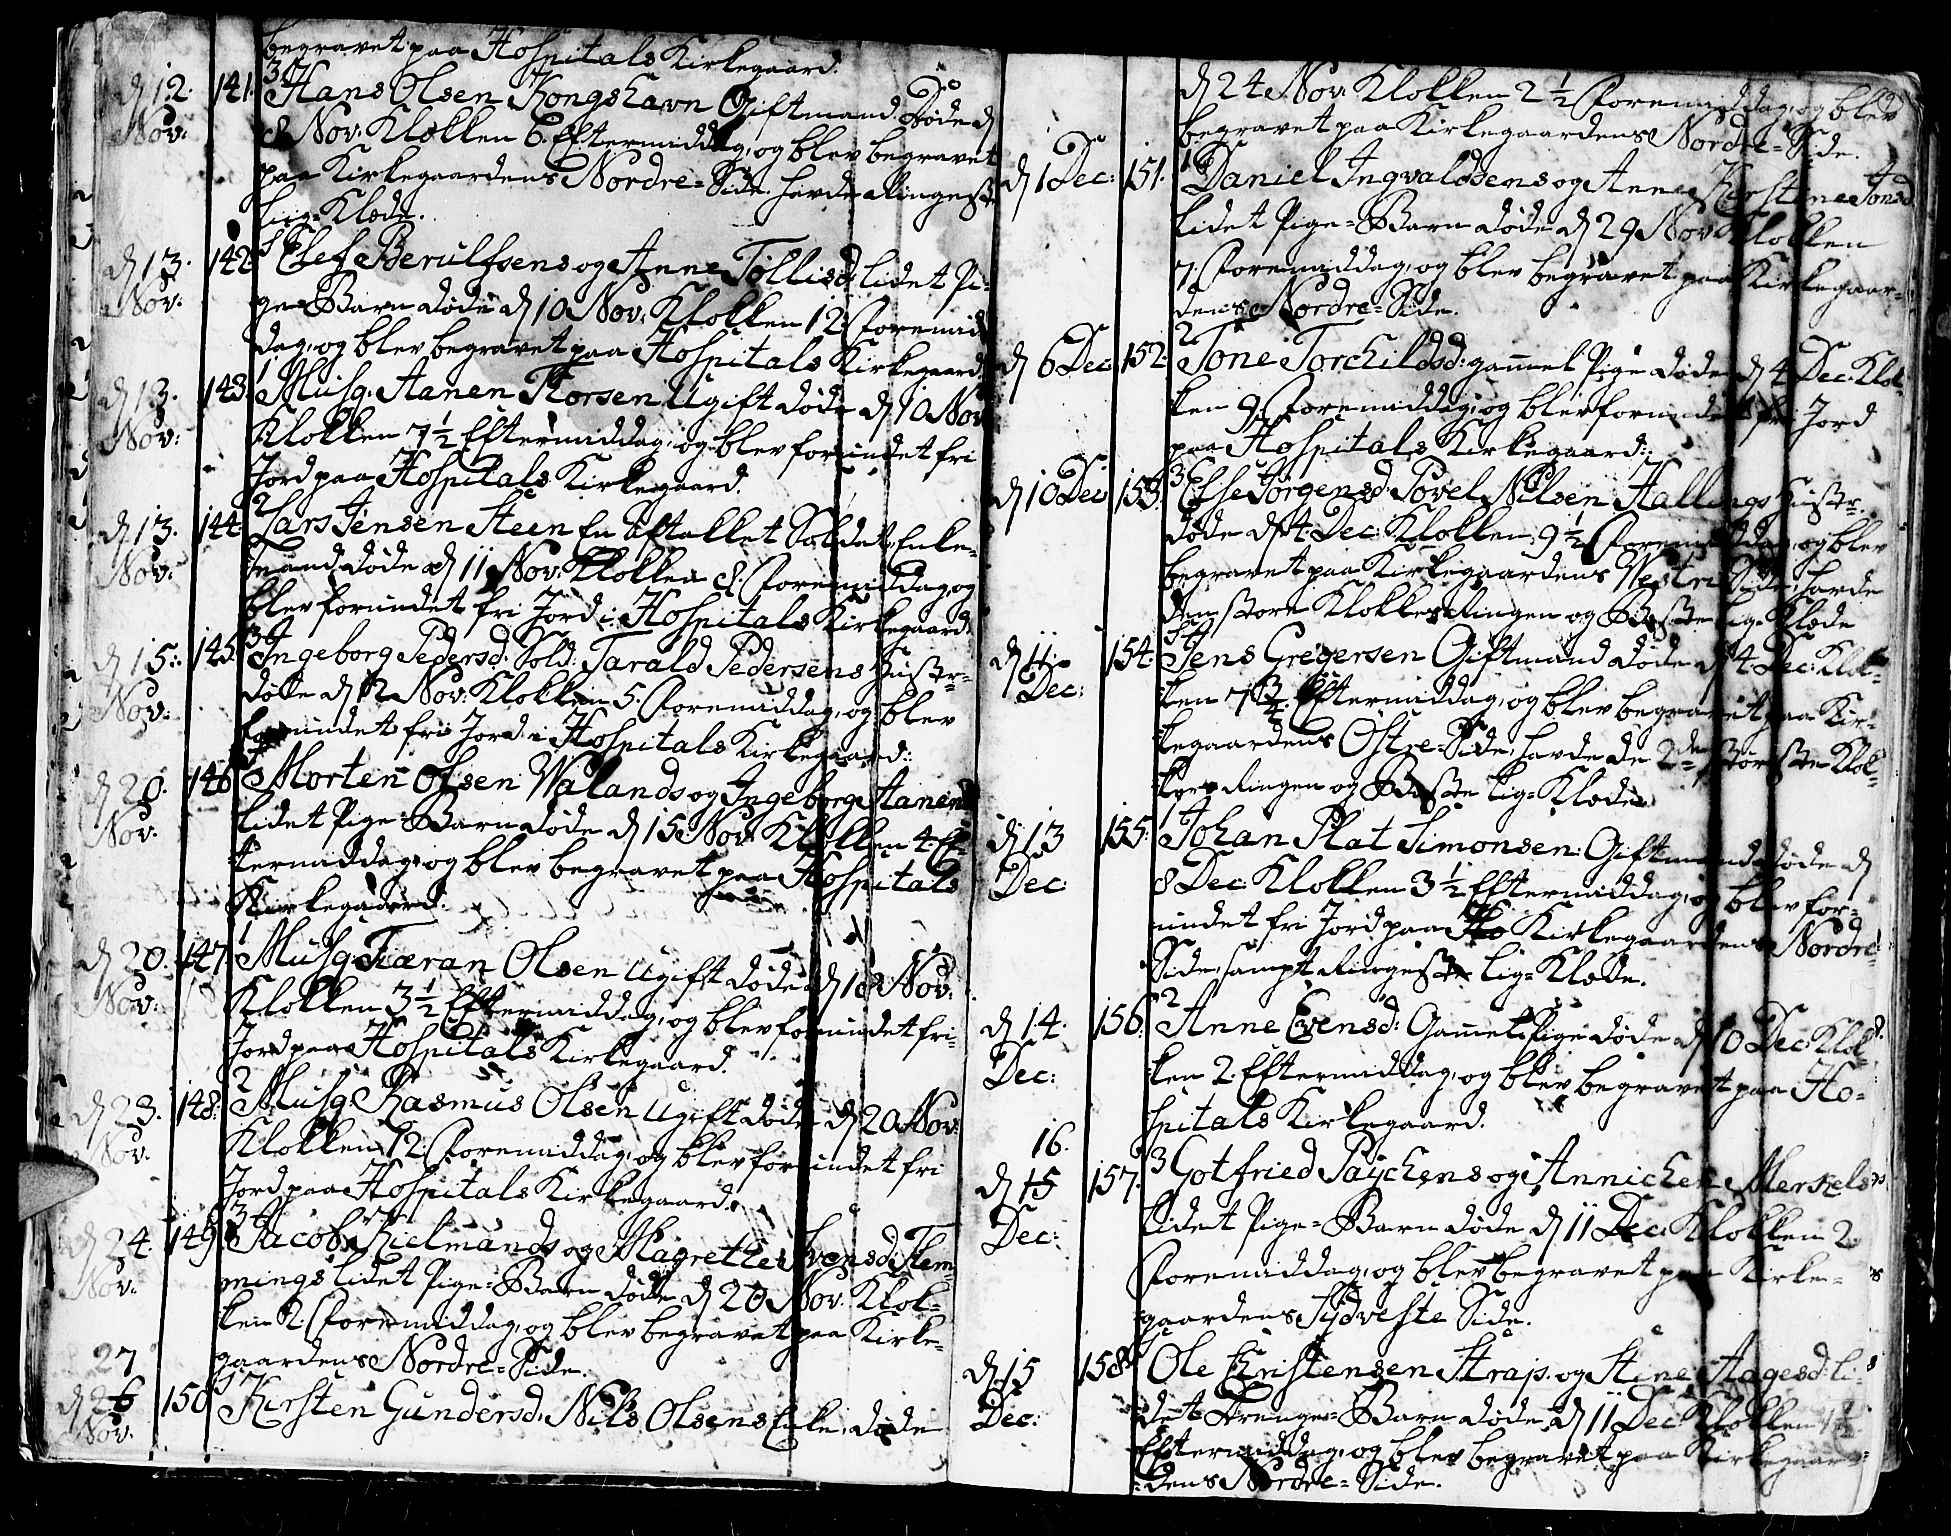 begravet paa Hospitals Kirkegaard.
d 12. Nov: 141. 3 Hans Olsen Kongshavn Giftmand Døde d
8 Nov: Klokken 6. Eftermiddag, og blev begravet
paa Kirkegaardens Nordre-Side. havde Ringeste
Liig-Klæde.
d 13. Nov: 142. Elef Berulfsens og Anne Tollisd: lidet Pi-
ge-Barn døde d 10 Nov: Klokken 12. Foremid
dag, og blev begravet paa Hospitals Kirkegaard.
d 13. Nov: 143. 1 Musq: Aanen Torsen Ugift døde d 10 Nov
Klokken 7½ Eftermiddag, og blev forundet fri
Jord paa Hospitals Kirkegaard.
d 13. Nov: 144. 2 Lars Jensen Steen En aftakket Soldat, Enke-
mand døde d 11 Nov: Klokken 8. Foremiddag, og
blev forundet fri Jord i Hospitals Kirkegaard.
d 15. Nov: 145. 3 Ingeborg Pedersd: Sold: Tarald Pedersens Hustr-
døde d 12 Nov: Klokken 5. Foremiddag, og blev
forundet fri Jord i Hospitals Kirkegaard.
d 20. Nov: 146. Morten Olsen Walands og Ingeborg Aanensd
lidet Pige-Barn døde d 15 Nov: Klokken 4. Ef-
termiddag, og blev begravet paa Hospitals
Kirkegaard.
d 20. Nov: 147. 1 Musq: Tiæran Olsen Ugift døde d 18 Nov:
Klokken 3½ Eftermiddag, og blev forundet fri-
Jord paa Hospitals Kirkegaard.
d 23. Nov: 148. 2 Musq: Rasmus Olsen Ugift døde d 20 Nov:
Klokken 12. Foremiddag, og blev forundet fri
Jord paa Hospitals Kirkegaard.
d 24. Nov: 149. 3 Jacob Kielmands og Magrethe Svensd: Flem-
mings lidet Pige-Barn døde d 20 Nov: Klok-
ken 2. Foremiddag, og blev begravet paa Kirke-
gaardens Nordre-Side.
27
d 26 Nov: 150 Kirsten Gundersd: Nils Olsens Enke, døde
d 24 Nov: Klokken 2½ Foremiddag, og blev
begravet paa Kirkegaardens Nordre-Side.
d 1 Dec: 151. 1 Daniel Ingvaldsens og Anne Kirstine Tonsd
lidet Pige-Barn døde d 29 Nov: Klokken
7. Foremiddag, og blev begravet paa Kirkegaar-
dens Nordre-Side.
d 6 Dec: 152. 2 Tone Torchildsd: gammel Pige døde d 4 Dec: Klok
ken 9. Foremiddag, og blev forundet fri Jord
paa Hospitals Kirkegaard:
d 10 Dec: 153. 3 Else Jørgensd: Povel Nilsen Hallings Hustr.
døde d 4 Dec: Klokken 9½ Foremiddag, og blev
begravet paa Kirkegaardens Vestre Side; havde
den store Klokkes Ringen og Beste Lig-Klæde
d 11. Dec: 154. Jens Gregersen Giftmand døde d 4 Dec: Klok-
ken 7 Eftermiddag, og blev begravet paa Kir-
kegaardens Østre-Side, havde de 2de største Klok-
kers Ringen og Beste Lig-Klæde.
d 13 Dec: 155. 1 Johan Plat Simonsen: Giftmand døde d
8 Dec: Klokken 3½ Eftermiddag, og blev for-
undet fri Jord paa Ho Kirkegaardens Nordre-
Side, sampt Ringeste Lig-Klæde.
d 14. Dec: 156. 2 Anne Evensd: Gammel Pige døde d 10 Dec: Klok-
ken 2. Eftermiddag, og blev begravet paa Ho-
spitals Kirkegaard.
16.
d 15 Dec: 157. 3 Gotfried Paychens og Annichen Mersels
lidet Pige-Barn døde d 11 Dec: Klokken 2.
Foremiddag, og blev begravet paa Kirke-
gaardens Sydveste Side.
d. 15 Dec: 158. Ole Christensen Strap. og Stine Aagesd: li-
det Drenge-Barn døde d 11 Dec: Klokken
Eftermiddag, og blev begravet paa Kirkegaar-
dens Nordre-Side.